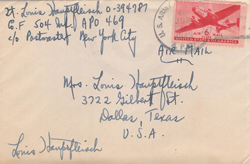 Lt. Louis Hauptfleisch O-394787
G.F 504 Inf. APO 469
c/o Postmaster New York City
U.S. AIR
6¢
AIR MAIL
Mrs. Louis Hauptfleisch
3722 Gilbert St.
Dallas, Texas
U.S.A.
Louis Hauptfleisch